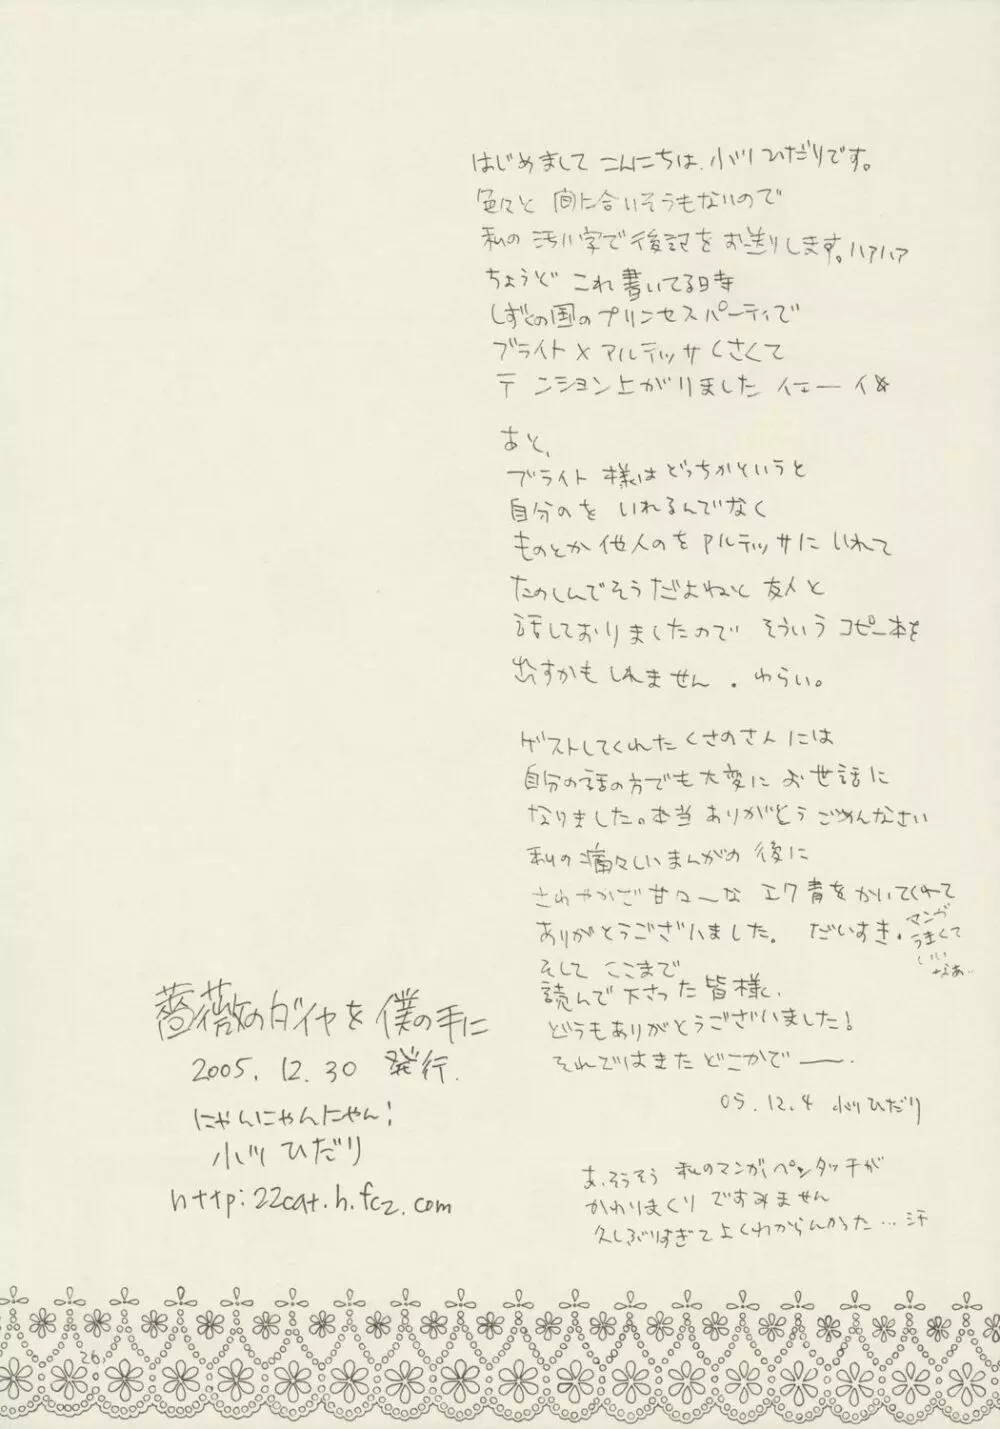 はじめまして こんにちは、小川ひだりです。
色々と 間に合いそうもないので
私の 汚い字で後記をお送りします。ハァハァ
ちょうど これ書いてる時
しずくの国のプリンセスパーティで
ブライト×アルテッサくさくて
テンション上がりました イエーイ☆
あと、
ブライト様はどっちかというと
自分のを いれるんでなく
ものとか他人のをアルテッサにいれて
たのしんでそうだよねと 友人と
話しておりましたので そういうコピー本を
出すかもしれません。わらい。
ゲストしてくれたくさのさんには
自分の話の方でも大変にお世話に
なりました。本当ありがとうごめんなさい
私の痛々しいまんがの後に
さわやかで甘々〜な エク青をかいてくれて
ありがとうございました。 だいすき。
マンガ
うまくて
いい
なあ…
そして ここまで
読んで下さった皆様、
どうもありがとうございました!
それではまたどこかで――.
05.12.4 小川ひだり
あ、そうそう 私のマンガ、ペンタッチが
かわりまくりですみません
久しぶりすぎてよくわからんかった…汗
薔薇のダイヤを僕の手に
2005.12.30 発行.
にゃんにゃんにゃん!
小川 ひだり
http:22cat.h.fc2.com
26